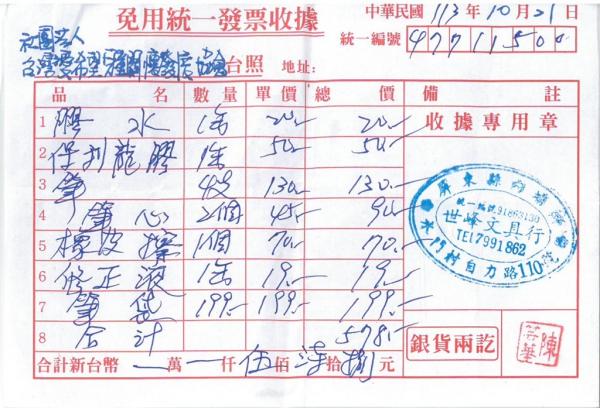 免用統一發票收據
中華民國113年10月21日
統一編號 47711500
社團法人
台灣 協會 台照 地址:
品名 數量 單價 總價 備註
1 膠水 1個 20.- 20.-
2 保利龍膠 1個 50.- 50.-
3 筆 4枝 130.- 130.-
4 筆心 2個 45.- 90.-
5 橡皮擦 1個 70.- 70.-
6 修正液 1個 19.- 19.-
7 筆袋 199.- 199.- 199.-
8 合計 578.-
合計新台幣 萬 仟伍佰柒拾捌元
收據專用章
屏東縣內埔鄉
統一編號91863130
世峰文具行
TEL7991862
水門村自力路110號
銀貨兩訖
陳